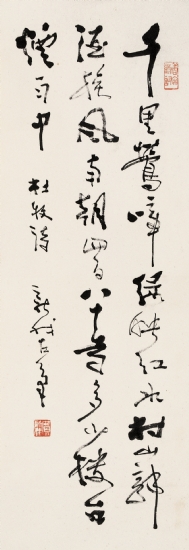 千里鶯啼綠映红水村山郭
酒旗風南朝四百八十寺多少樓台
煙雨中
杜牧诗